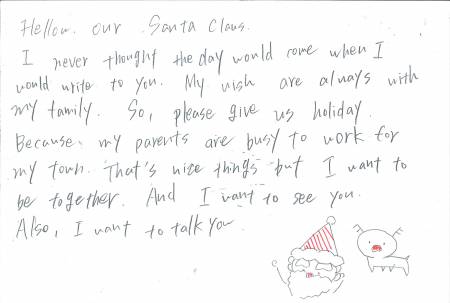 Hellow. our Santa Claus.
I never thought the day would come when I
would write to you. My wish are always with
my family. So, please give us holiday.
Because, my parents are busy to work for
my town. That's nice things but I want to
be together. And I want to see you.
Also, I want to talk you